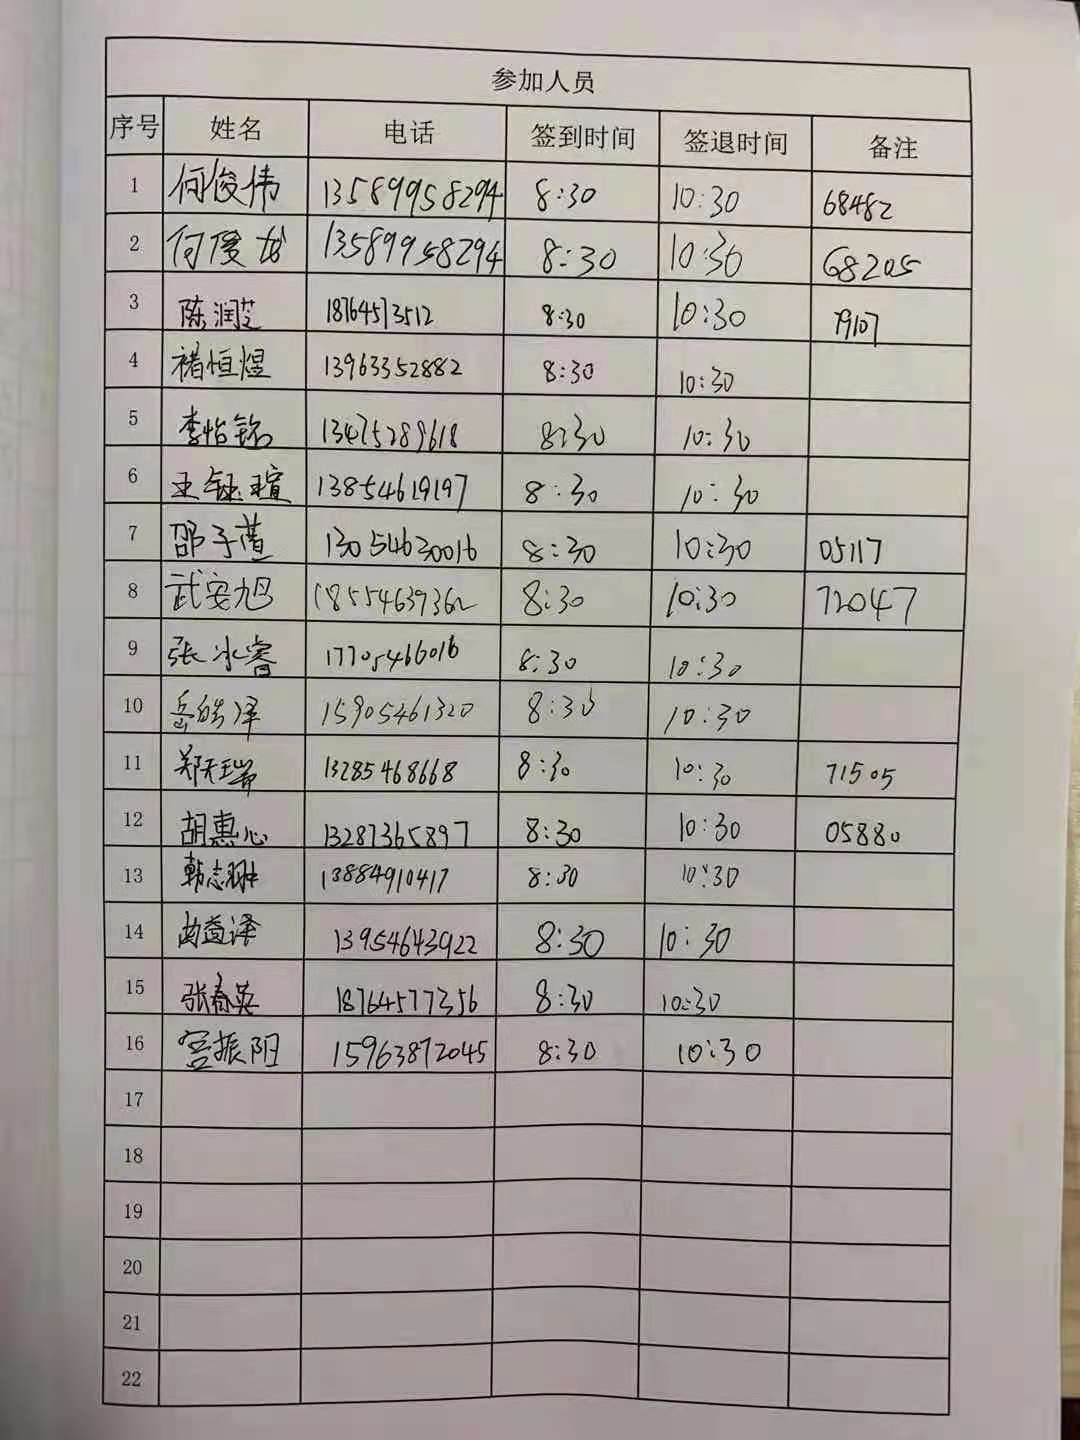 参加人员
序号 姓名 电话 签到时间 签退时间 备注
1 何俊伟 13589958294 8:30 10:30 68482
2 何俊龙 13589958294 8:30 10:30 68205
3 陈润芝 18764573512 8:30 10:30 79107
4 褚恒煜 13963352882 8:30 10:30
5 李怡铭 13475289618 8:30 10:30
6 王钰瑄 13854619197 8:30 10:30
7 邵子萱 13054630016 8:30 10:30 05117
8 武安旭 18554639362 8:30 10:30 72047
9 张冰睿 17705466016 8:30 10:30
10 岳皓泽 15905461320 8:30 10:30
11 郑天瑞 13285468668 8:30 10:30 71505
12 胡惠心 13287365897 8:30 10:30 05880
13 韩志 13884910417 8:30 10:30
14 曲益译 13954643922 8:30 10:30
15 张春英 18764577356 8:30 10:30
16 宫振阳 15963872045 8:30 10:30
17
18
19
20
21
22